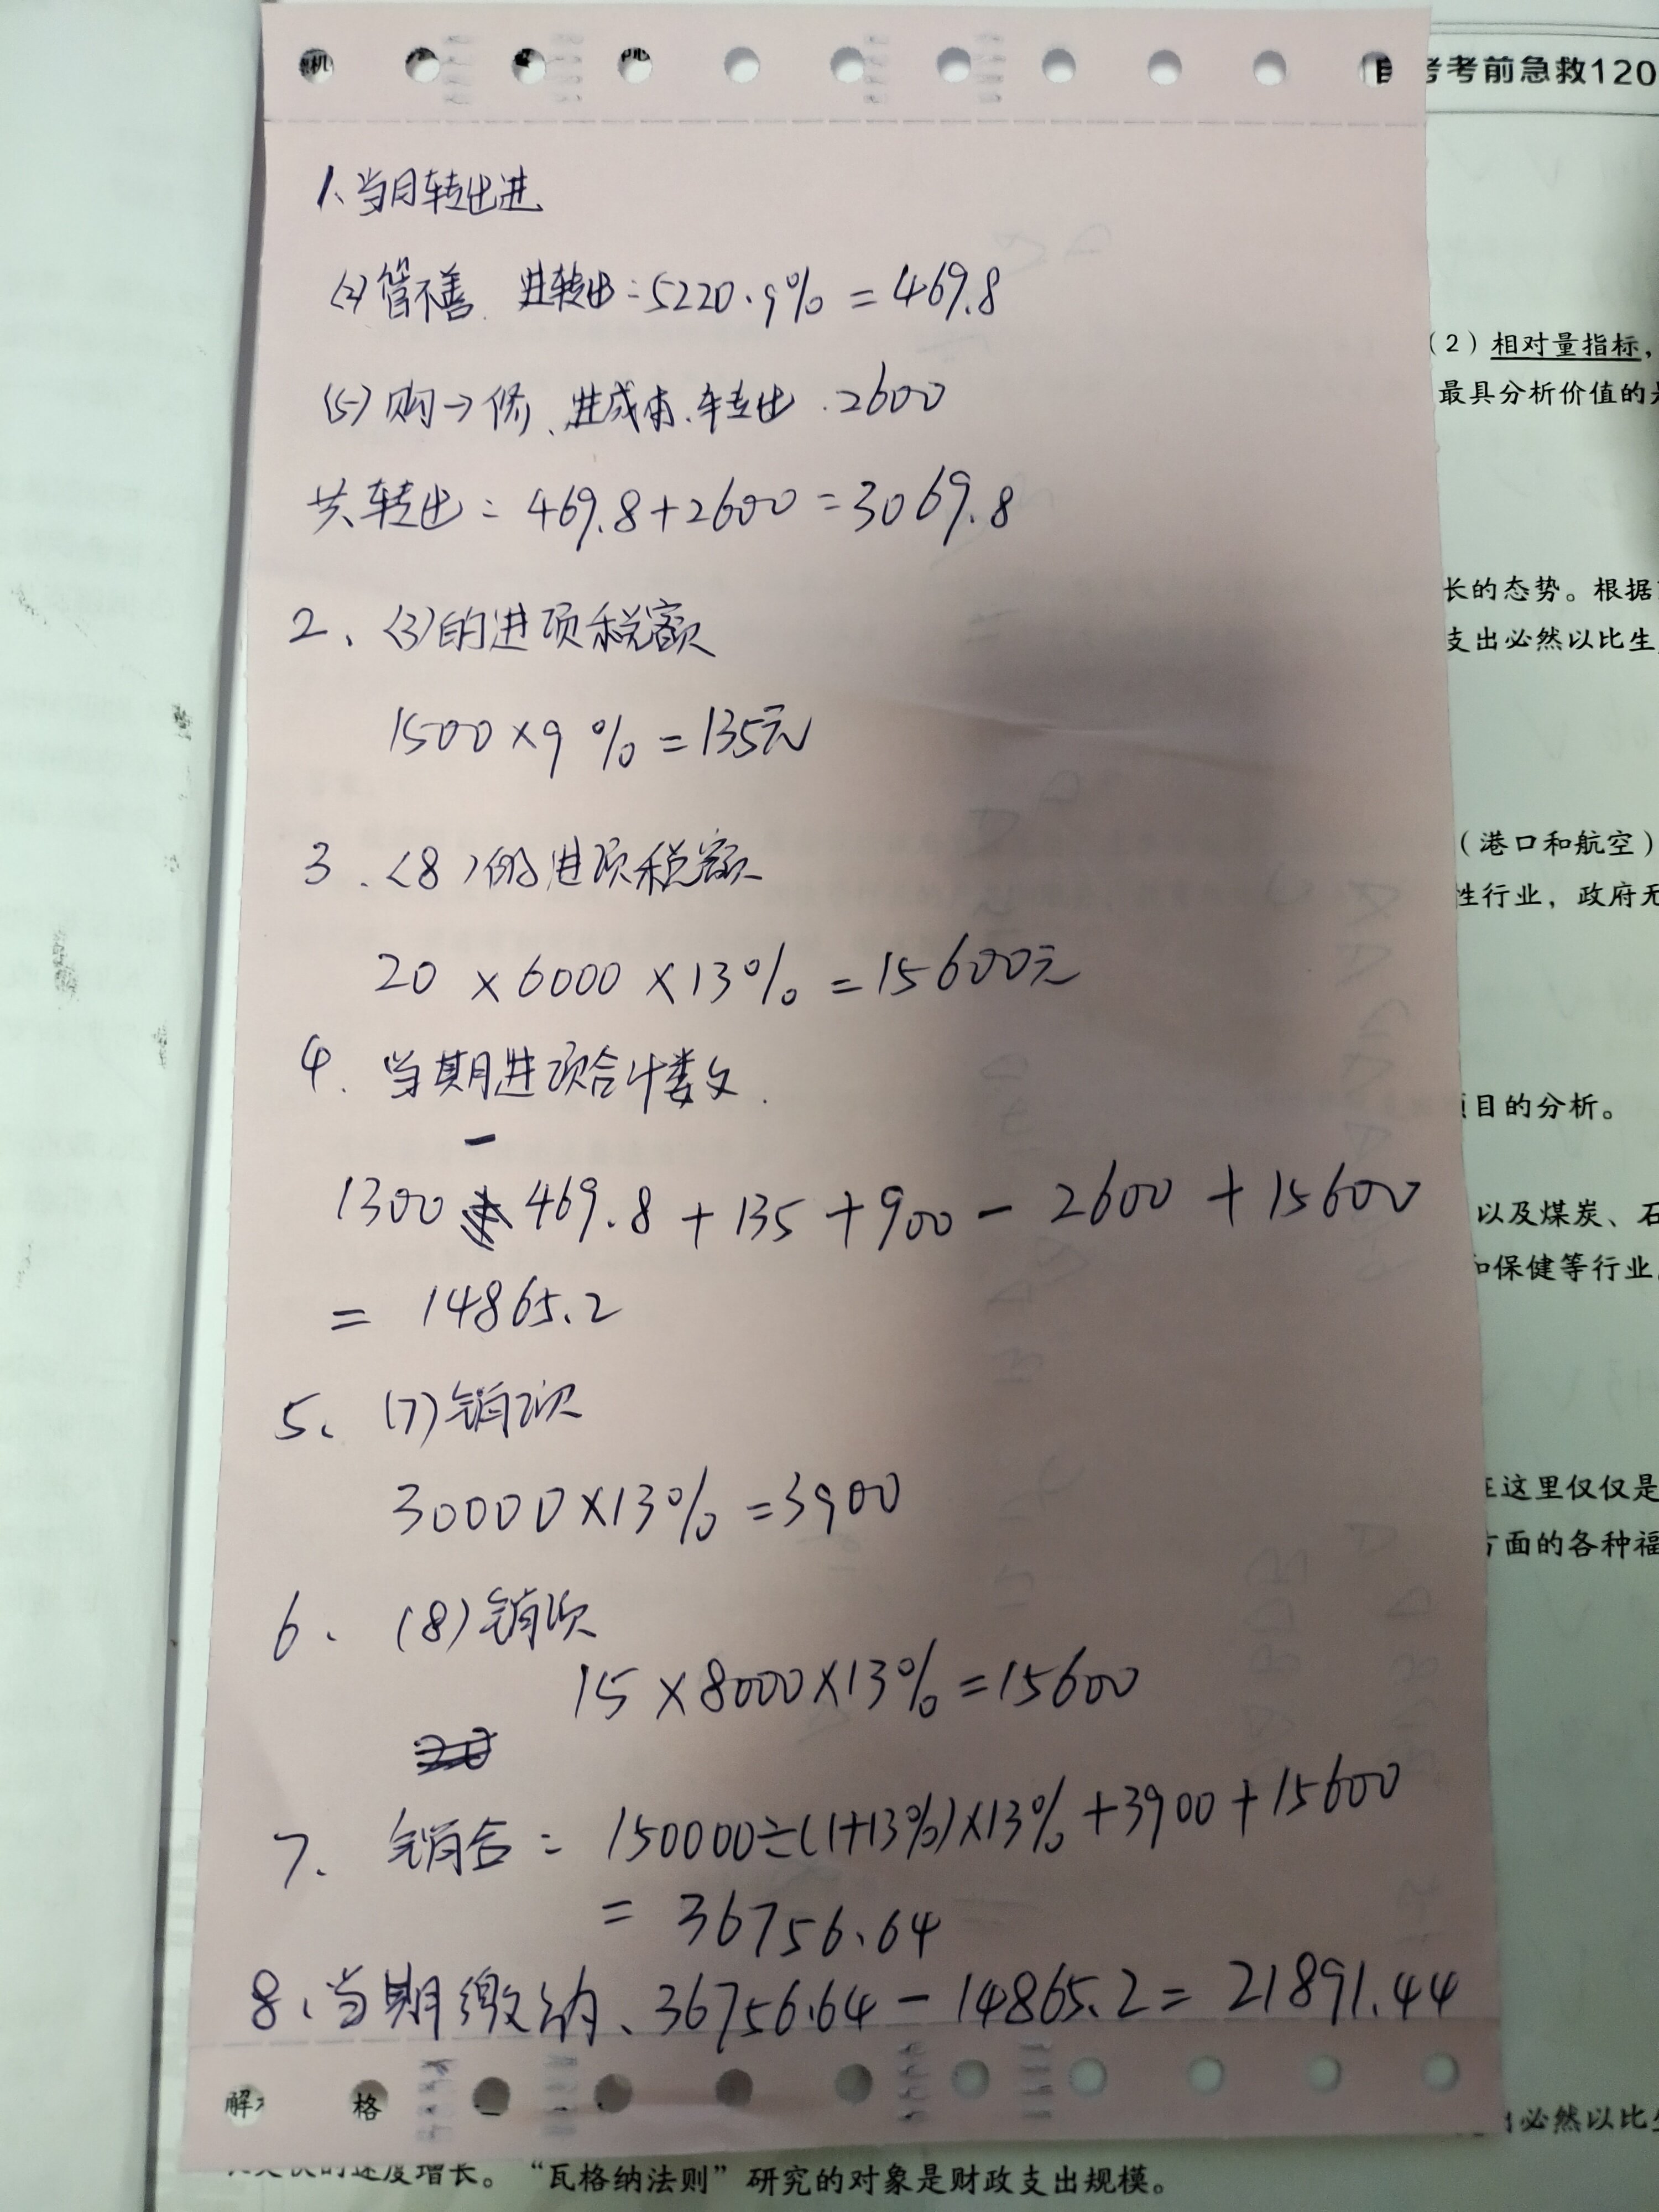 考考前急救120
1、当月转出进
(2)管不善. 进转出=5220.9%=469.8
(5)购→修、进成本.转出.2600
共转出=469.8+2600=3069.8
2、(3)的进项税额
1500×9%=135元
3.(8)的进项税额
20×6000×13%=15600元
4.当期进项合计数.
1300-469.8+135+900-2600+15600
=14865.2
5、(7)销项
30000×13%=3900
6、(8)销项
15×8000×13%=15600
7、销合=150000÷(1+13%)×13%+3900+15600
=36756.64
8、当期缴纳、36756.64-14865.2=21891.44
(2)相对量指标,
最具分析价值的
长的态势。根据
支出必然以比生
(港口和航空)
性行业,政府无
项目的分析。
以及煤炭、石
和保健等行业
在这里仅仅是
方面的各种福
解 格
必然以比
的速度增长。“瓦格纳法则”研究的对象是财政支出规模。